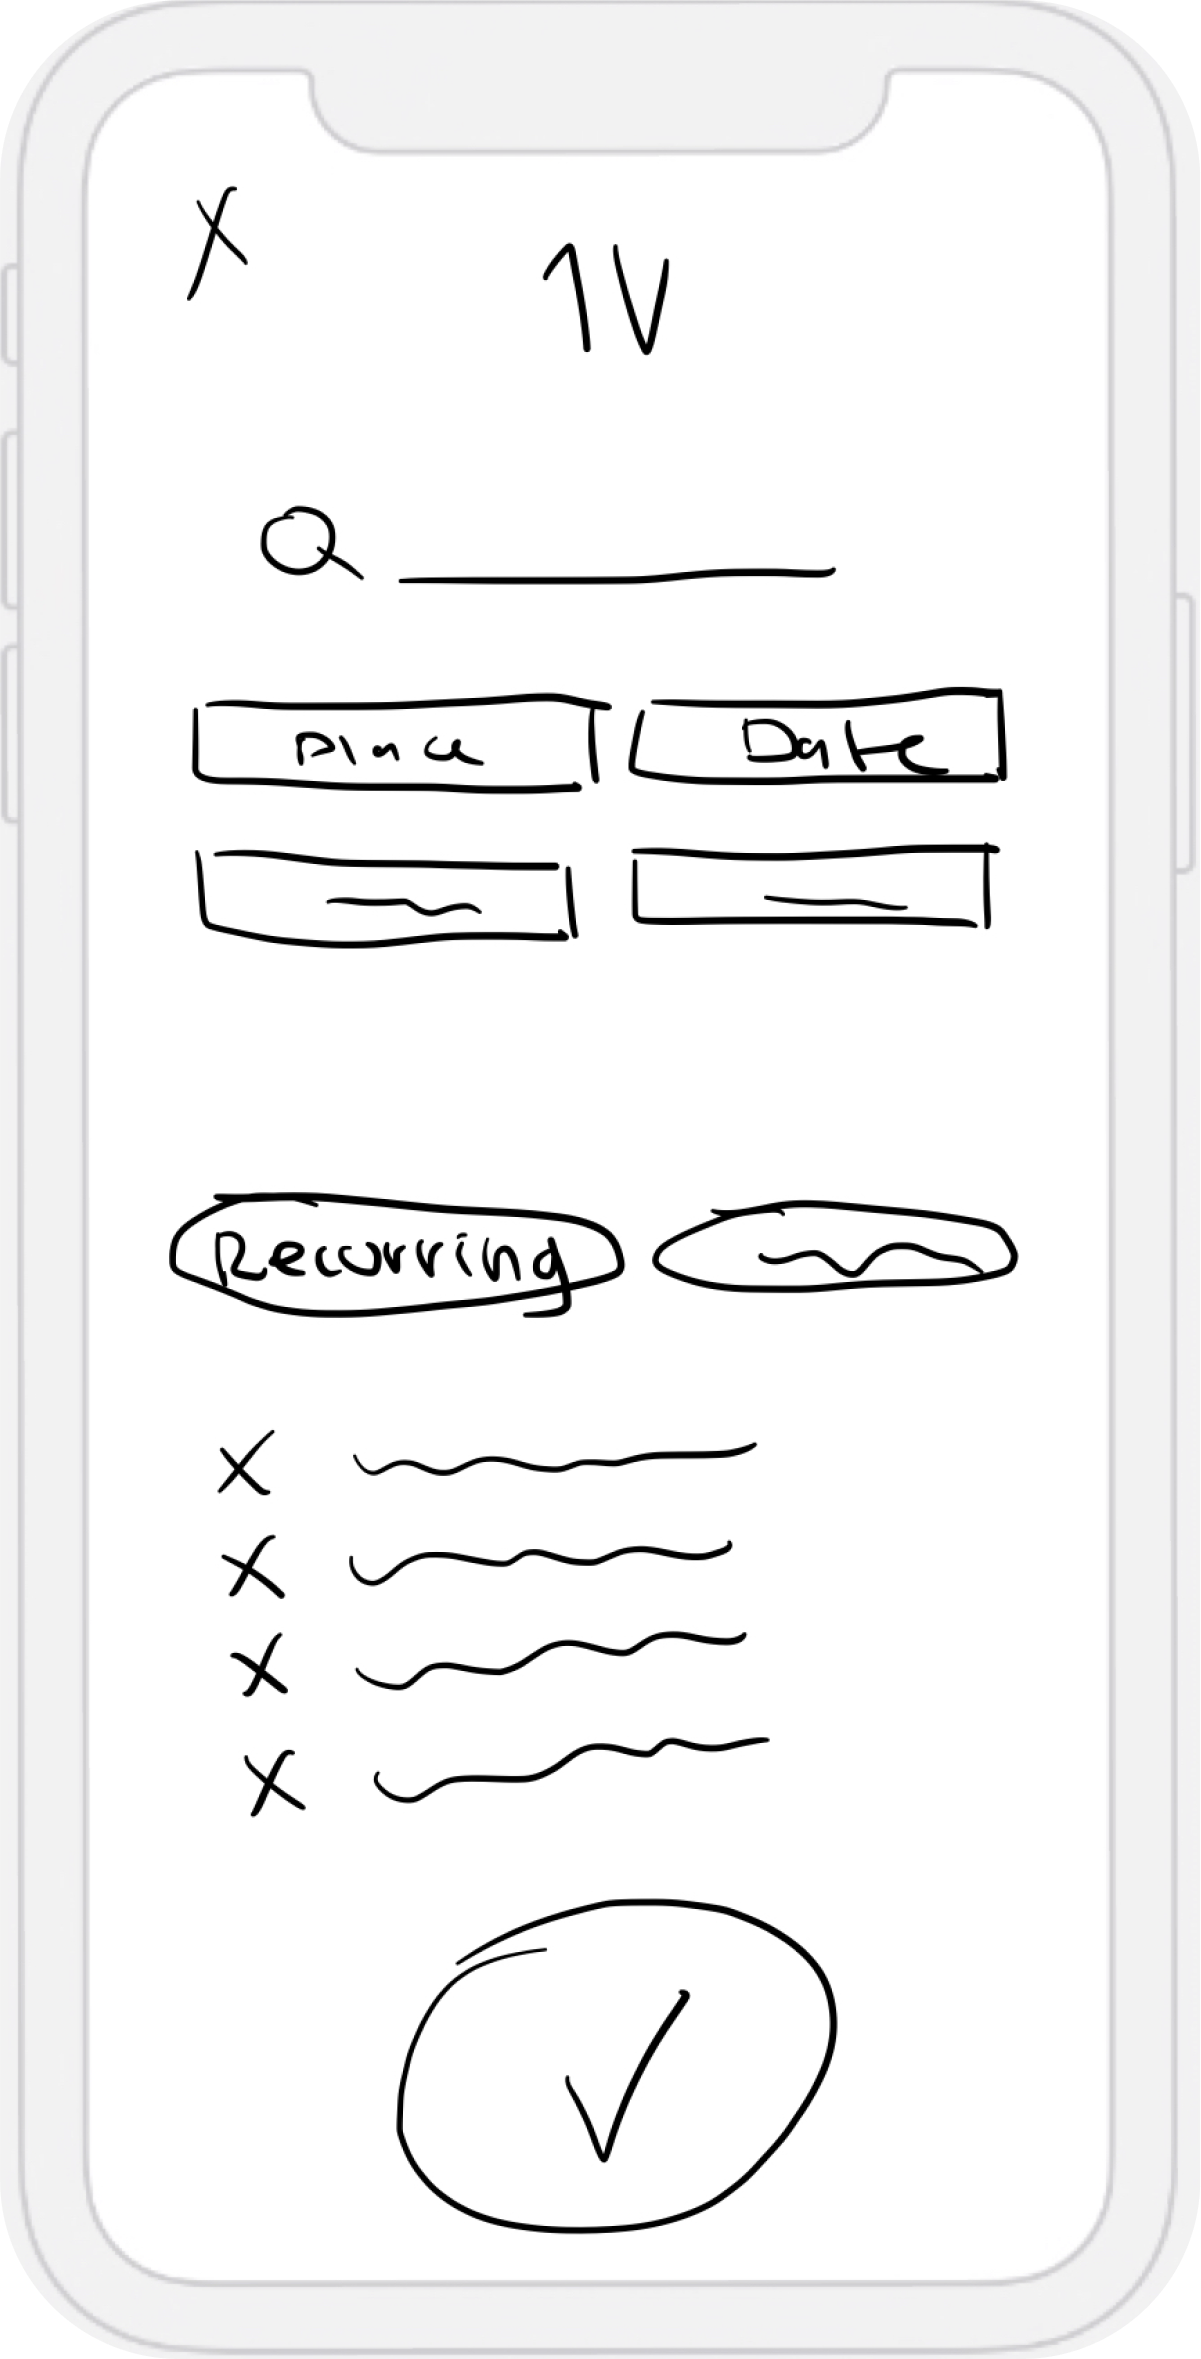 X
1V
Place Date
Recurring
X
X
X
X